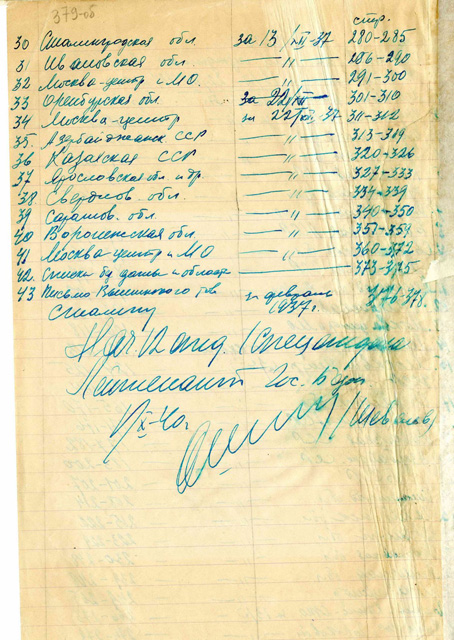 379-об
стр.
30 Сталинградская обл. за 13/XII-37 280-285
31 Ивановская обл. — „ — 286-290
32 Москва-центр и МО. — „ — 291-300
33 Оренбургская обл. за 22/XII— 301-310
34 Москва-центр за 22/XII-37 311-312
35. Азербайджанск. ССР — „ — 313-319
36 Казахская ССР — „ — 320-326
37 Ярославская обл. и др. — „ — 327-333
38 Свердлов. обл. — „ — 334-339
39 Саратов. обл. — „ — 340-350
40 Воронежская обл. — „ — 351-359
41 Москва-центр и МО — „ — 360-372
42. Списки без даты и области — 373-375
43 Письмо Вышинского тов за февраль 376-378.
Сталину 1937 г.
Нач 12 отд. 1 Спецотдела
Лейтенант Гос. Без
1/X-40г